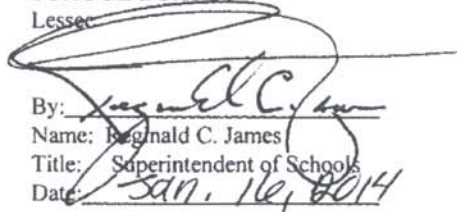 Lessee
By: Reginald C. James
Name: Reginald C. James
Title: Superintendent of Schools
Date: Jan. 16, 2014